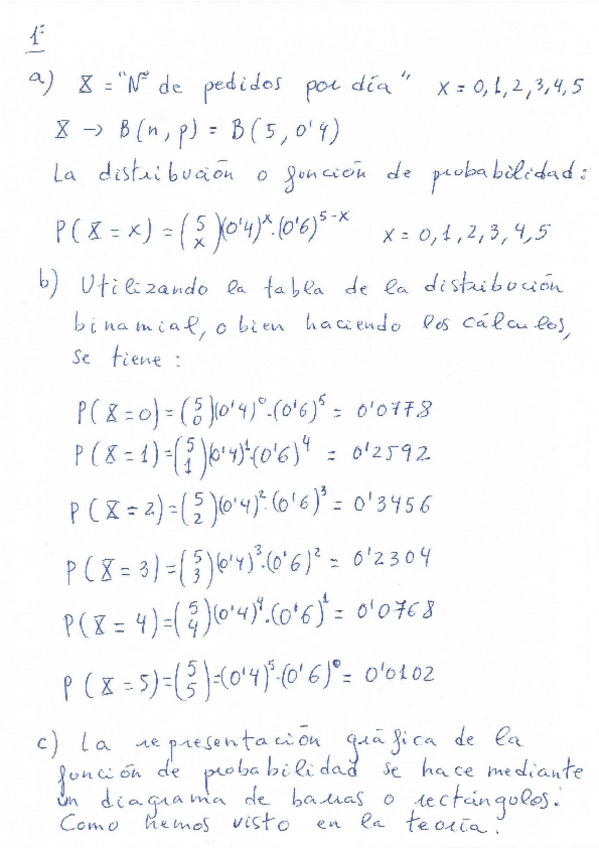 1º
a) X = "Nº de pedidos por día" x = 0,1,2,3,4,5
X → B(n, p) = B(5, 0'4)
La distribución o función de probabilidad:
P(X = x) = (5 x)(0'4)^x·(0'6)^5-x x = 0,1,2,3,4,5
b) Utilizando la tabla de la distribución
binamial, o bien haciendo los cálculos,
se tiene:
P(X=0) = (5 0)(0'4)^0·(0'6)^5 = 0'0778
P(X=1) = (5 1)(0'4)^1·(0'6)^4 = 0'2592
P(X=2) = (5 2)(0'4)^2·(0'6)^3 = 0'3456
P(X=3) = (5 3)(0'4)^3·(0'6)^2 = 0'2304
P(X=4) = (5 4)(0'4)^4·(0'6)^1 = 0'0768
P(X=5) = (5 5)=(0'4)^5·(0'6)^0 = 0'0102
c) La representación gráfica de la
función de probabilidad se hace mediante
un diagrama de barras o rectángulos.
Como hemos visto en la teoría.